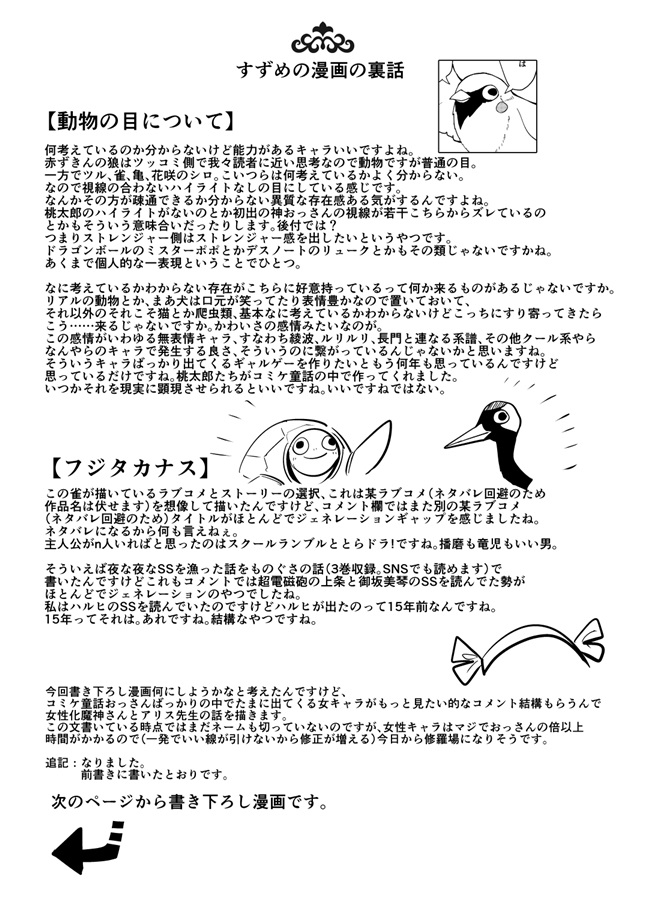 すずめの漫画の裏話
は
【動物の目について】
何考えているのか分からないけど能力があるキャラいいですよね。
赤ずきんの狼はツッコミ側で我々読者に近い思考なので動物ですが普通の目。
一方でツル、雀、亀、花咲のシロ。こいつらは何考えているかよく分からない。
なので視線の合わないハイライトなしの目にしている感じです。
なんかその方が疎通できるか分からない異質な存在感ある気がするんですよね。
桃太郎のハイライトがないのとか初出の神おっさんの視線が若干こちらからズレているの
とかもそういう意味合いだったりします。後付では？
つまりストレンジャー側はストレンジャー感を出したいというやつです。
ドラゴンボールのミスターポポとかデスノートのリュークとかもその類じゃないですかね。
あくまで個人的な一表現ということでひとつ。
なに考えているかわからない存在がこちらに好意持っているって何か来るものがあるじゃないですか。
リアルの動物とか、まあ犬は口元が笑ってたり表情豊かなので置いておいて、
それ以外のそれこそ猫とか爬虫類、基本なに考えているかわからないけどこっちにすり寄ってきたら
こう……来るじゃないですか。かわいさの感情みたいなのが。
この感情がいわゆる無表情キャラ、すなわち綾波、ルリルリ、長門と連なる系譜、その他クール系やら
なんやらのキャラで発生する良さ、そういうのに繋がっているんじゃないかと思いますね。
そういうキャラばっかり出てくるギャルゲーを作りたいともう何年も思っているんですけど
思っているだけですね。桃太郎たちがコミケ童話の中で作ってくれました。
いつかそれを現実に顕現させられるといいですね。いいですねではない。
【フジタカナス】
この雀が描いているラブコメとストーリーの選択、これは某ラブコメ（ネタバレ回避のため
作品名は伏せます）を想像して描いたんですけど、コメント欄ではまた別の某ラブコメ
（ネタバレ回避のため）タイトルがほとんどでジェネレーションギャップを感じましたね。
ネタバレになるから何も言えねぇ。
主人公がn人いればと思ったのはスクールランブルととらドラ！ですね。播磨も竜児もいい男。
そういえば夜な夜なSSを漁った話をものぐさの話（3巻収録。SNSでも読めます）で
書いたんですけどこれもコメントでは超電磁砲の上条と御坂美琴のSSを読んでた勢が
ほとんどでジェネレーションのやつでしたね。
私はハルヒのSSを読んでいたのですけどハルヒが出たのって15年前なんですね。
15年ってそれは。あれですね。結構なやつですね。
今回書き下ろし漫画何にしようかなと考えたんですけど、
コミケ童話おっさんばっかりの中でたまに出てくる女キャラがもっと見たい的なコメント結構もらうんで
女性化魔神さんとアリス先生の話を描きます。
この文書いている時点ではまだネームも切っていないのですが、女性キャラはマジでおっさんの倍以上
時間がかかるので（一発でいい線が引けないから修正が増える）今日から修羅場になりそうです。
追記：なりました。
前書きに書いたとおりです。
次のページから書き下ろし漫画です。